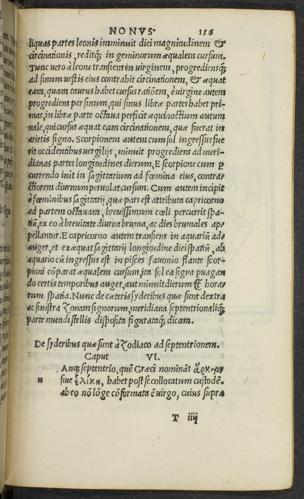 NONVS. 156
liquas partes leonis imminuit diei magnitudinem &
circinationis, reditq; in geminorum æqualem cursum.
Tunc vero à leone transiens in virginem, progrediensq;
ad sinum vestis eius contrahit circinationem, & æquat
eam, quam taurus habet cursus rationem, è virgine autem
progrediens per sinum, qui sinus libræ partes habet pri-
mas, in libræ parte octaua perficit æquinoctium autum
nale, qui cursus æquat eam circinationem, quæ fuerat in
arietis signo. Scorpionem autem cum sol ingressus fue
rit occidentibus vergiliis, minuit progrediens ad meri-
dianas partes longitudines dierum, E scorpione cum p
currendo init in sagittarium ad fœmina eius, contra-
ctiorem diurnum peruolat cursum. Cum autem incipit
à fœminibus sagittarij, quæ pars est attributa capricorno
ad partem octauam, breuissimum cœli percurrit spa-
tiū, ex eo à breuitate diurna bruma, ac dies brumales ap-
pellantur. E capricorno autem transiens in aquariū ad-
auget, et exæquat sagittarij longitudine diei spatiū, ab
aquario cū ingressus est in pisces fauonio flante scor-
pioni cōparat æqualem cursum, ita sol ea signa puagan
do certis temporibus auget, aut minuit dierum & horar
rum, spatia. Nunc de cæteris syderibus quæ sunt dextra
ac sinistra Zonam signorum, meridiana septentrionaliq;
parte mundi stellis disposita figurataq; dicam.
De syderibus quæ sunt à Zodiaco ad septentrionem.
Caput VI.
Anq; septentrio, quē Græci nomināt ἄρκτον
siue ἑλίκη, habet post se collocatum custodē.
ab eo nō lōge cōformata ē virgo, cuius supra
T iiij